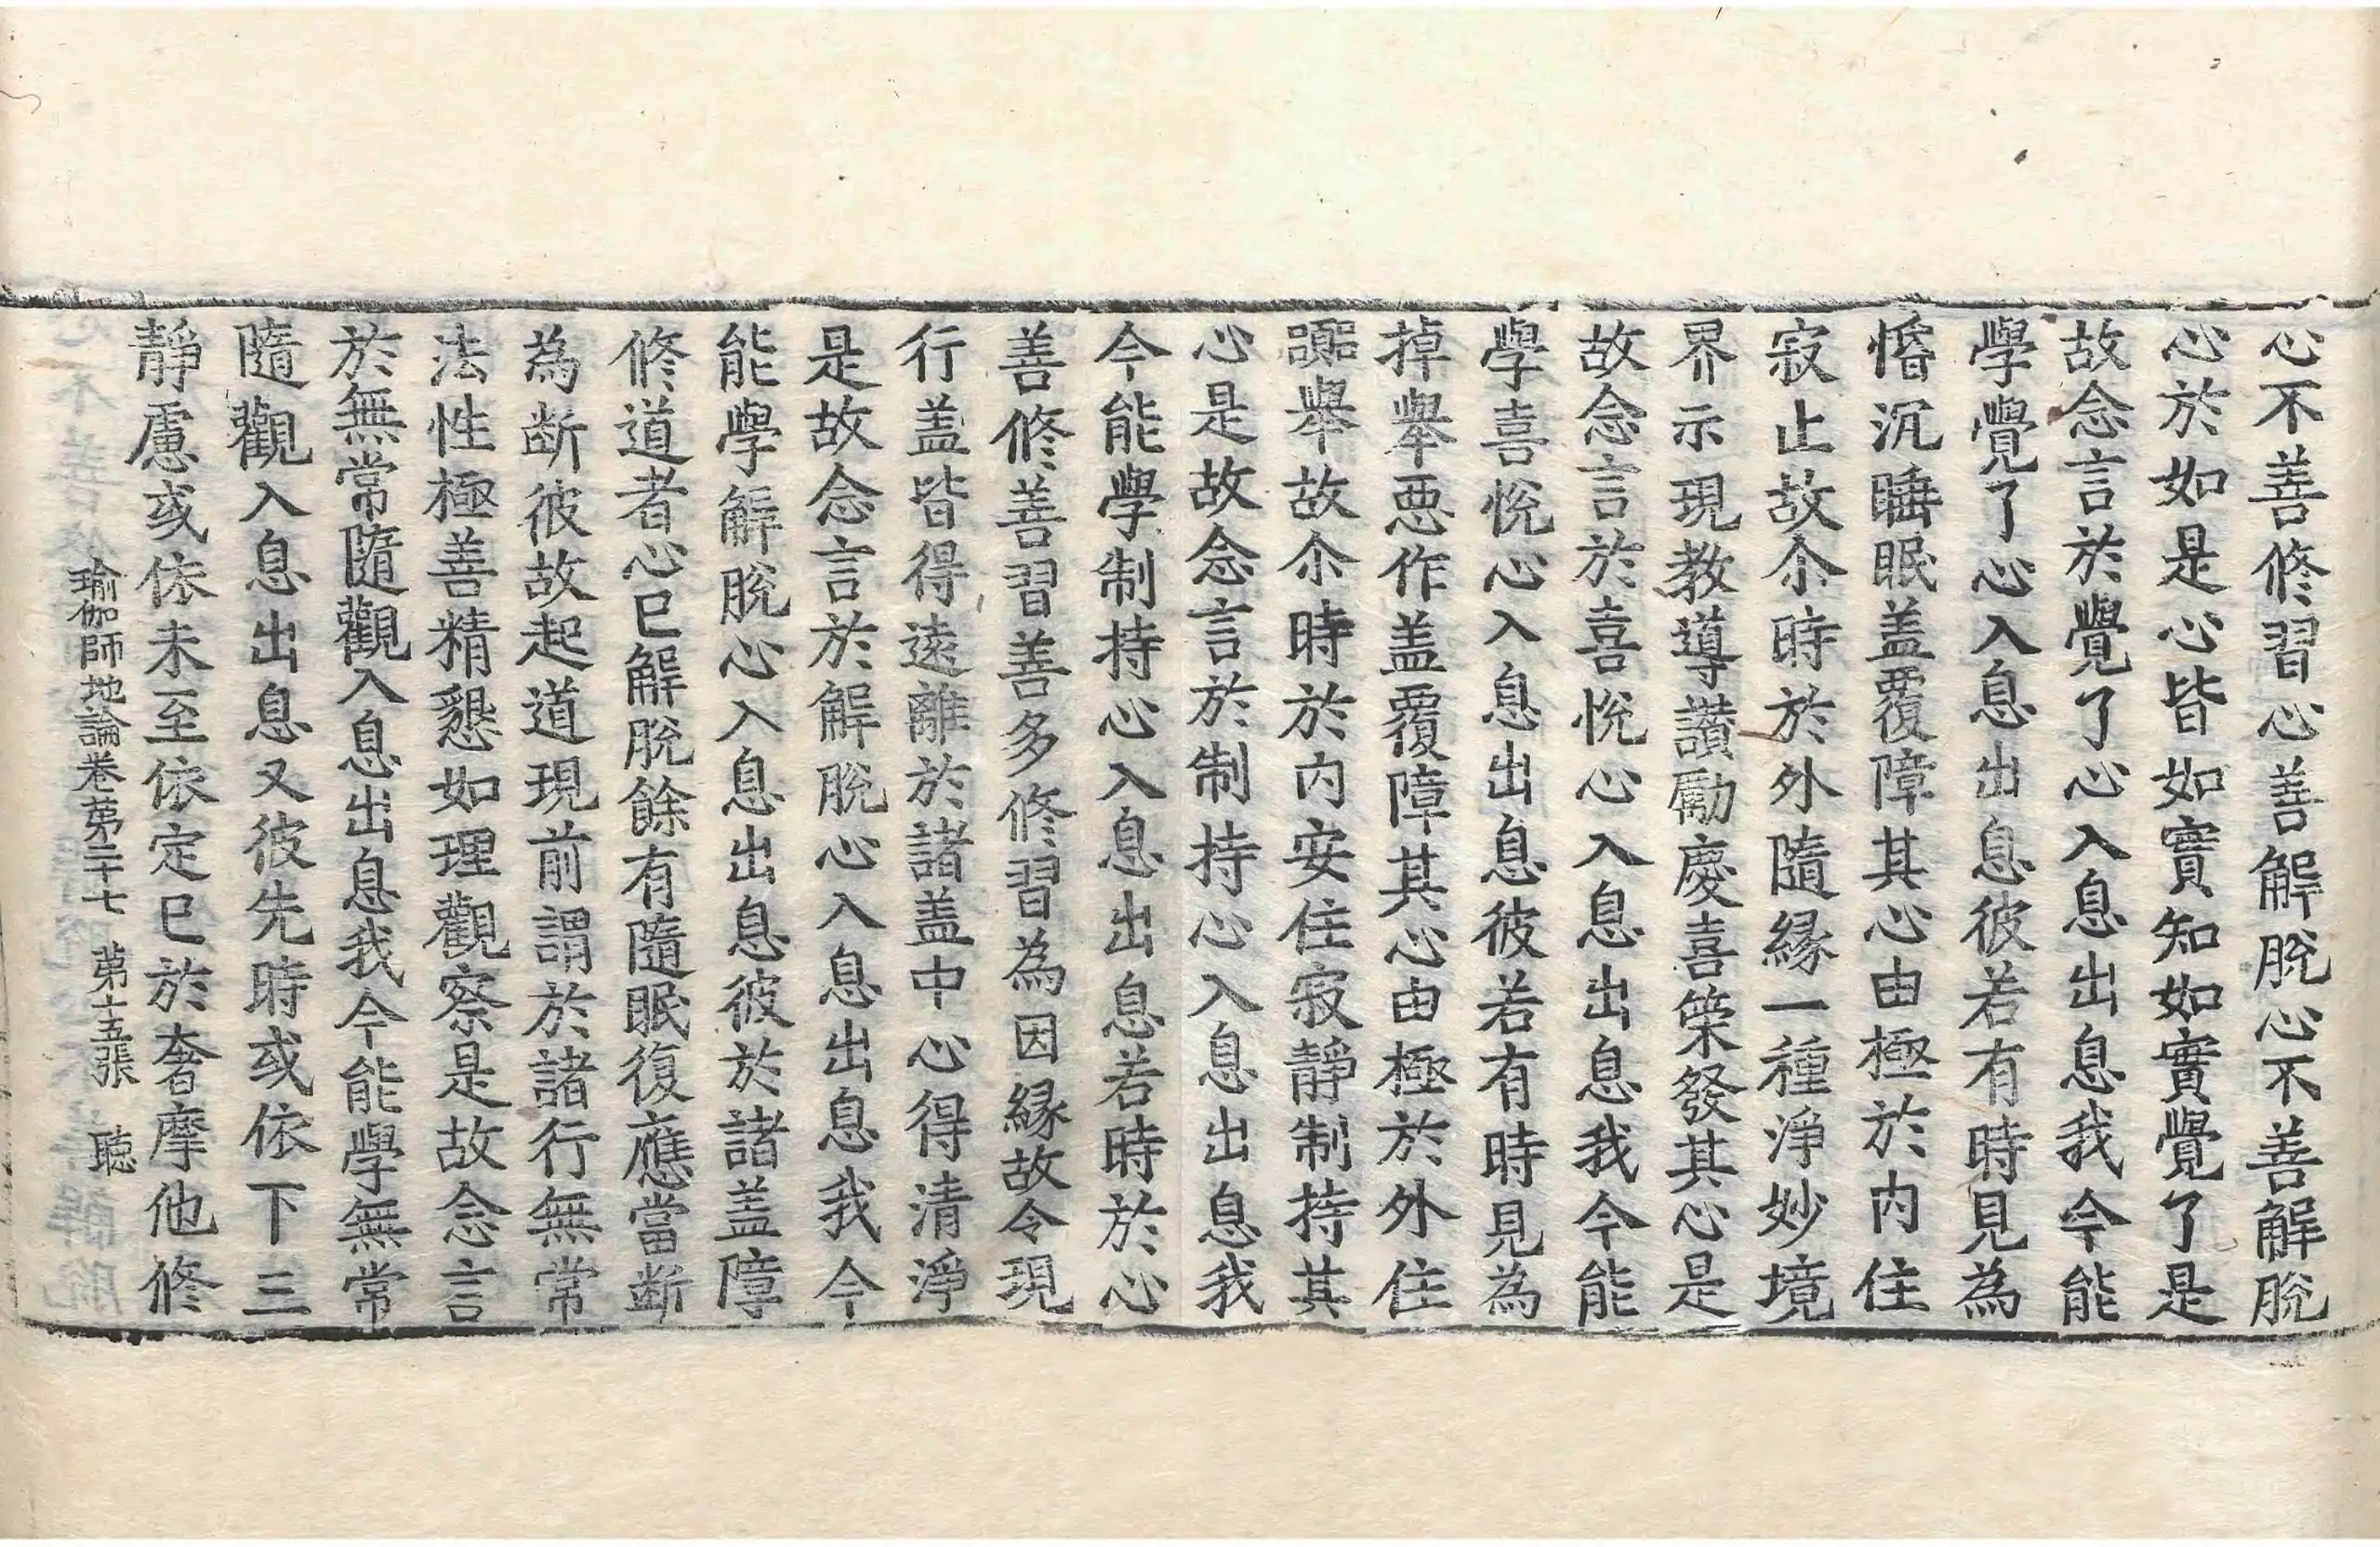 心不善修習心善解脫心不善解脫
心於如是心皆如實知如實覺了是
故念言於覺了心入息出息我今能
學覺了心入息出息彼若有時見為
惛沉睡眠盖覆障其心由極於內住
寂止故尒時於外隨緣一種淨妙境
界示現教導讚勵慶喜䇿發其心是
故念言於喜悅心入息出息我今能
學喜悅心入息出息彼若有時見為
掉舉惡作盖覆障其心由極於外住
躁舉故尒時於內安住寂靜制持其
心是故念言於制持心入息出息我
今能學制持心入息出息若時於心
善修善習善多修習為因緣故令現
行盖皆得遠離於諸盖中心得清淨
是故念言於解脫心入息出息我今
能學解脫心入息出息彼於諸盖障
修道者心已解脫餘有隨眠復應當斷
為断彼故起道現前謂於諸行無常
法性極善精懇如理觀察是故念言
於無常隨觀入息出息我今能學無常
隨觀入息出息又彼先時或依下三
靜慮或依未至依定已於奢摩他修
瑜伽師地論卷第二十七　第十五張　聦